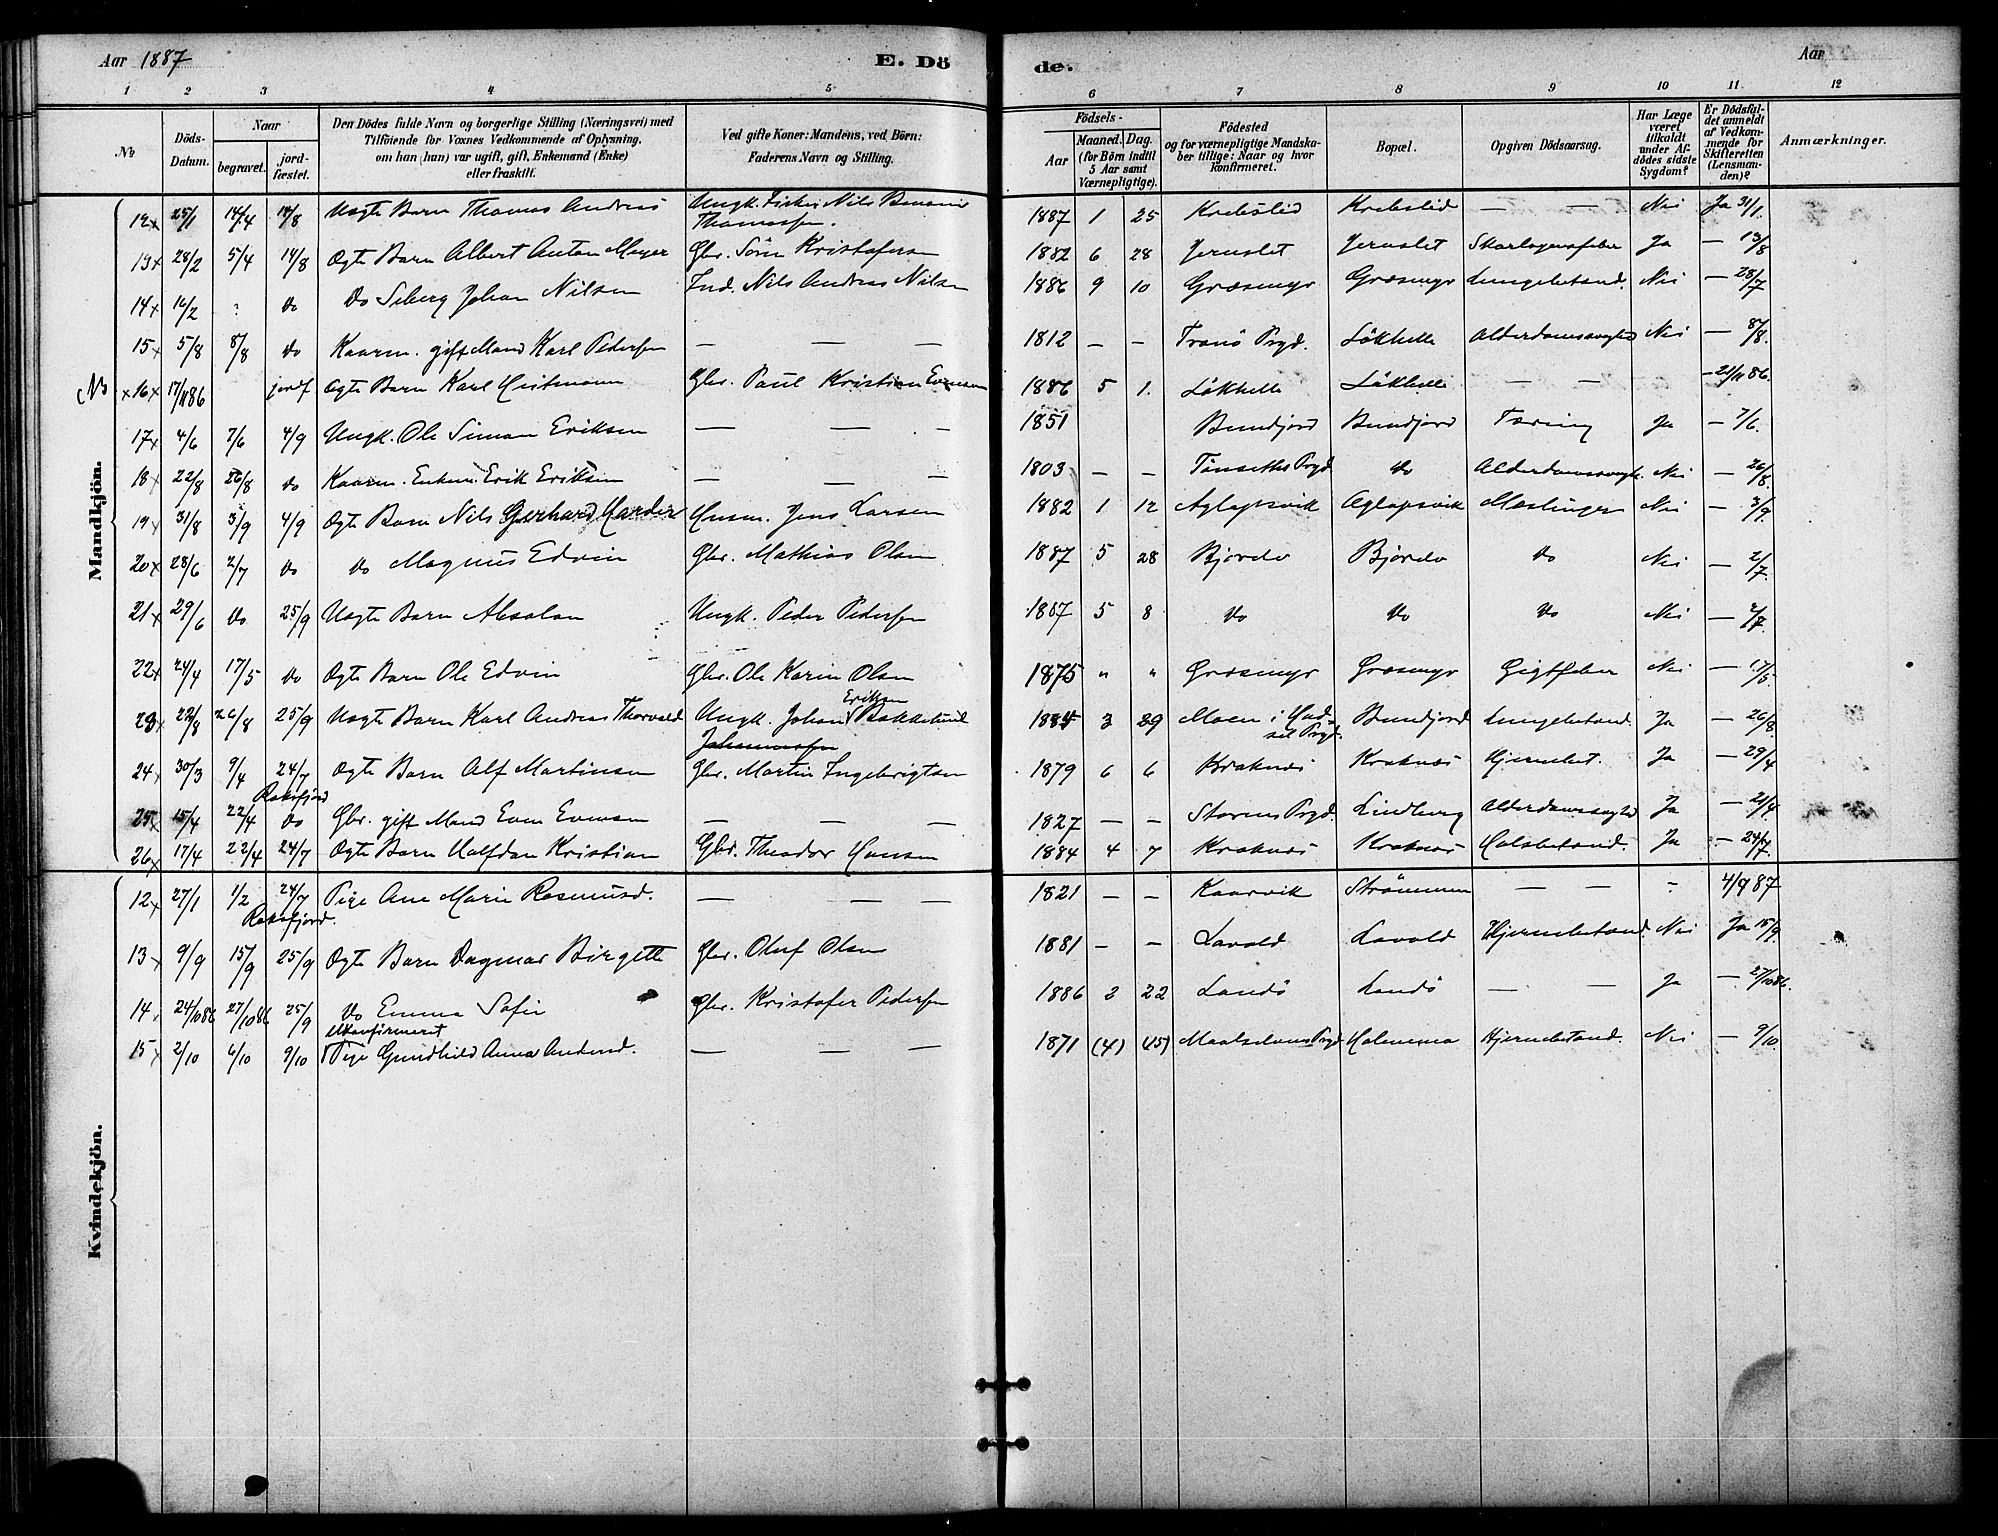 Aar 1887 E. Dö de. Aar
1 2 3 4 5 6 7 8 9 10 11 12
No Döds-Datum. Naar begravet. jordfæstet. Den Dödes fulde Navn og borgerlige Stilling (Næringsvei) med Tilföiende for Voxnes Vedkommende af Oplysning, om han (hun) var ugift, gift, Enkemand (Enke) eller fraskilt. Ved gifte Koner: Mandens, ved Börn: Faderens Navn og Stilling. Födsels- Aar Maaned. Dag. (for Börn indtil 5 Aar samt Værnepligtige). Födested og for værnepligtige Mandskaber tillige: Naar og hvor konfirmeret. Bopæl. Opgiven Dödsaarsag. Har Læge været tilkaldt under Afdödes sidste Sygdom? Er Dödsfaldet anmeldt af Vedkommende for Skifteretten (Lensmanden)? Anmærkninger.
Mandkjön.
12x 25/1 14/4 14/8 Uægte Barn Thomas Andreas Ungk. Fisker Nils Thomassen. 1887 1 25 Krebslid Krebslid — — Nei Ja 31/1.
13x 28/2 5/4 14/8 Ægte Barn Albert Anton Meyer Gbr. Sörn Kristofersen 1882 6 28 Skarlagensfeber Ja — 13/8
14x 16/2 " do Do Seberg Johan Nilsen Ind. Nils Andreas Nilsen 1886 9 10 Græsmyr Græsmyr Lungebetænd. Nei — 28/7
15x 5/8 8/8 do Kaarm. gift Mand Karl Pedersen — — — 1812 — — Tranö Prgd. Lökhelle Alderdomssvaghed Nei — 8/8.
No x16x 17/11 86 jordf Ægte Barn Karl Hartmann Gbr. Paul Kristian Evensen 1886 5 1. Lökhelle Lökhelle — — — 21/11 86.
17x 4/6 7/6 4/9 Ungk. Ole Simon Eriksen — — — 1851 Bundjord Bundjord Tæring Ja — 7/6.
18x 22/8 26/8 do Kaarm. Enkem. Erik Eriksen — — — 1803 — — Tönseths Prgd do Alderdomssvagh. Nei — 26/8.
19x 31/8 3/9 4/9 Ægte Barn Nils Gerhard Harder Husm. Jens Larsen 1882 1 12 Aglapsvik Aglapsvik Mæslinger Nei — 3/9.
20x 28/6 2/7 do do Magnus Edvin Gbr. Mathias Olsen 1887 5 28 Bjorelv Bjorelv do Nei — 2/7.
21x 29/6 do 25/9 Uægte Barn Absalon Ungk. Peder Pedersen 1887 5 8 do do do Nei — 2/7.
22x 24/4 17/5 do Ægte Barn Ole Edvin Gbr. Ole Karin Olsen 1875 " " Græsmyr Græsmyr Gigtfeber Nei — 17/5.
23x 22/8 26/8 25/9 Uægte Barn Karl Andreas Thorvald Ungk. Johan Eriksen Bakkelund Johannessen 1884 3 29 Moen i Hadsel Prgd. Bundjord Lungebetænd. Ja — 26/8.
24x 30/3 9/4 24/7 Ægte Barn Alf Martinsen Gbr. Martin Ingebrigtsen 1879 6 6 Kraknæs Kraknæs Hjernebet. Ja — 29/4
Roksfjord
25x 15/4 22/4 do Gbr. gift Mand Even Evensen — — — 1827 — — Storens Prgd. Lindberg Alderdomssvaghed Ja — 21/4.
26x 17/4 22/4 24/7 Ægte Barn Halfdan Kristian Gbr. Theodor Hansen 1884 4 7 Kraknæs Kraknæs Halsbetænd. Ja — 24/7.
Kvindekjön.
12x 27/1 1/2 24/7 Pige Ane Marie Rasmusd. — — — 1821 — — Kaarvik Strömmen — — - 4/9 87
Roksfjord.
13x 9/9 15/9 25/9 Ægte Barn Dagmar Birgitte Gbr. Oluf Olsen 1881 — — Lavold Lavold Hjernebetænd. Nei Ja 15/9.
14x 24/10 86 27/10 86 25/9 Do Emma Sofie Gbr. Kristofer Pedersen 1886 2 22 Sandö Sandö — — Ja — 27/10 86.
ukonfirmeret
15x 2/10 6/10 9/10 Pige Gundhild Anna Andersd. — — — 1871 (4) (15) Maalselvens Prgd Holmenes Hjernebetænd. Nei — 9/10.